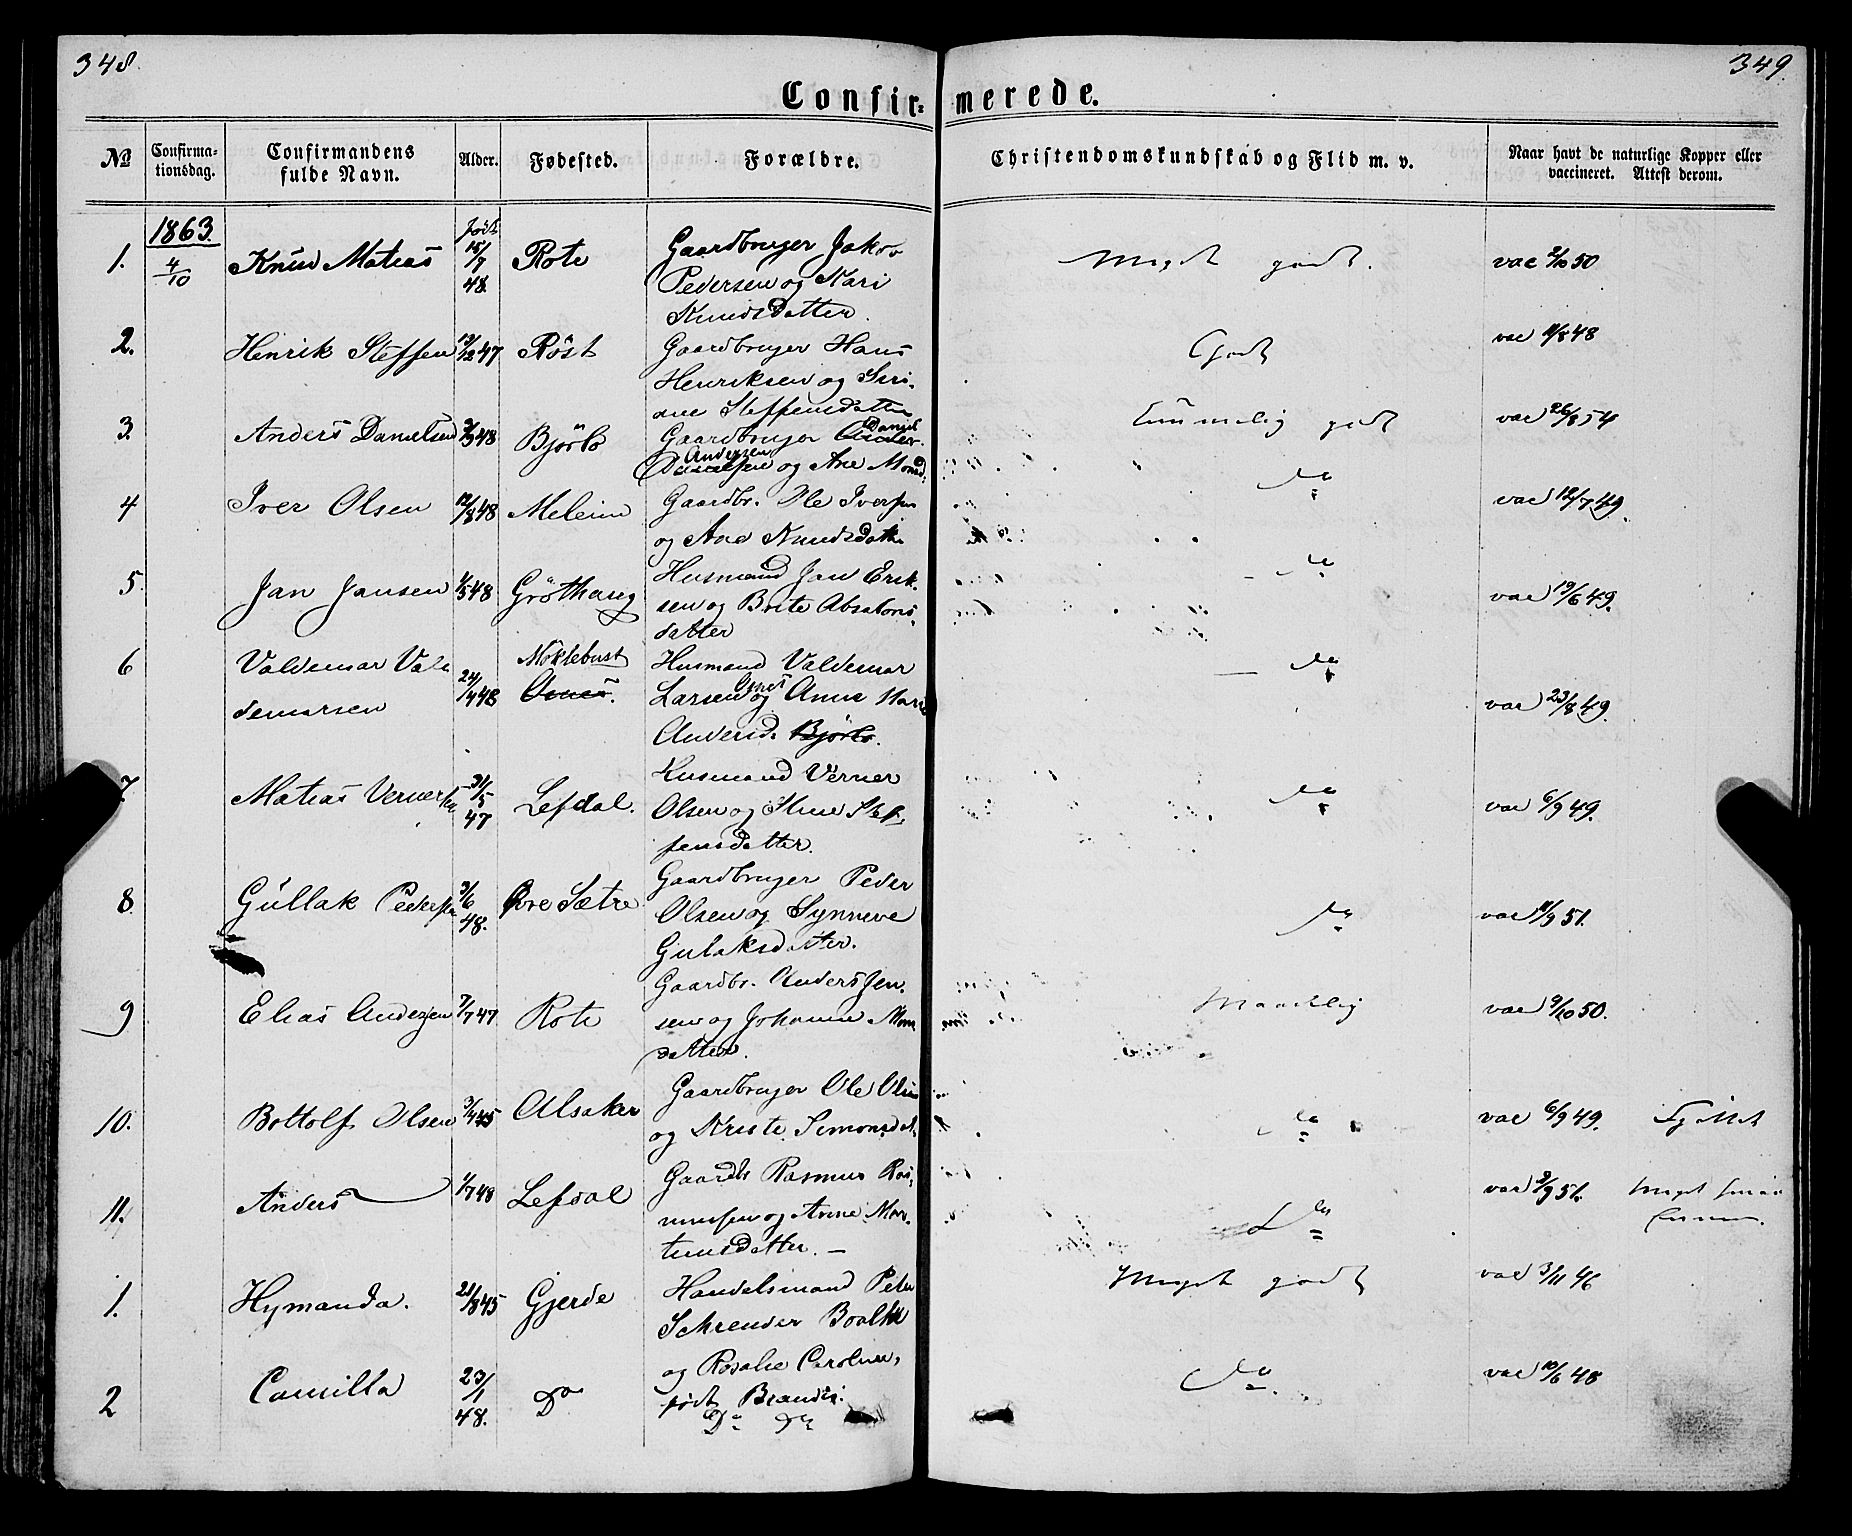 348.
349.
Confir- merede.
№
Confirma-
tionsdag.
Confirmandens
fulde Navn.
Alder.
Fødested.
Forældre.
Christendomskundskab og Flid m. v.
Naar havt de naturlige Kopper eller
vaccineret. Attest derom.
1863.
1. 4/10 Knud Matias født 15/7 48. Rote Gaardbruger Jakob Meget godt. vac 2/10 50
Pedersen og Kari
Knudsdatter.
2. Henrik Steffen 19/12 47 Röst Gaardbruger Hans Godt vac 11/8 48
Henriksen og Siri-
ane Steffensdatter
3. Anders Danielsen 48 Björlo Gaardbruger Daniel Temmelig godt vac 26/8 54
Andersen og Ane Monsd.
4 Iver Olsen 12/8 48 Meleim Gaardbr. Ole Iversen do vac 12/7 49.
og Ane Knudsdatter
5. Jan Jansen 1/5 48 Gröthaug Husmand Jan Erik- do vac 19/6 49.
sen og Brite Absalons-
datter
6 Valdemar Val- 24/4 48 Nöklebust Husmand Valdemar do vac 23/8 49.
demarsen Osnes. Larsen Osnes og Anne Marie
Andersd. Björlo.
7. Matias Vernersen 31/5 47 Lefdal. Husmand Verner do vac 6/9 49.
Olsen og Stef-
fensdatter.
8. Gullak Pedersen 3/6 48. Övre Sætre Gaardbruger Peder do vac 11/9 51.
Olsen og Synneve
Gulaksdatter.
9 Elias Andersen 7/7 47 Rote Gaardbr. Anders Jen- Maadelig vac 9/10 50.
sen og Johanne Mons
datter.
10. Bottolf Olsen 3/4 45 Alsaker Gaardbruger Ole Olsen do vac 6/9 49. Fyttet
og Kriste Simonsdat.
11. Anders 1/7 48 Lefdal Gaardbr Rasmus Ras- do vac 3/9 51. Meget
mussen og Anne Mor-
tensdatter. –
1. Hymanda. 21/8 45 Gjerde Handelsmand Peter Meget godt vac 3/11 46
Schrender Boalth
2 Camilla 23/1 48. Do og Rosalie Caroline, do vac 10/6 48
født Brandt.
Do Do